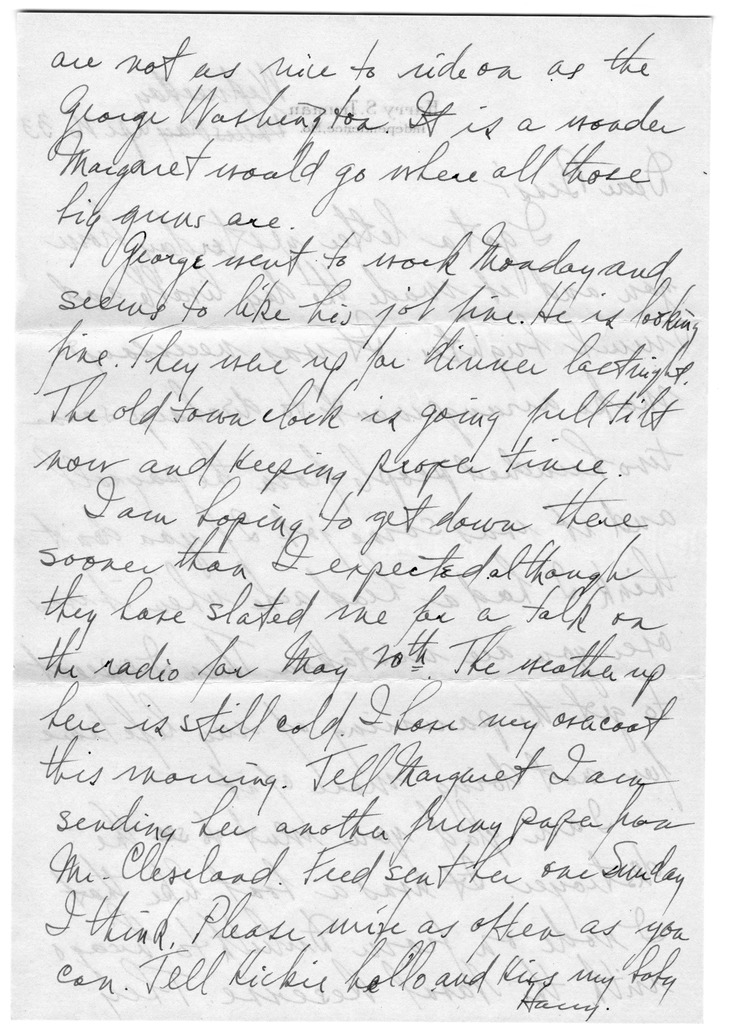 are not as nice to ride on as the
George Washington. It is a wonder
Margaret would go where all those
big guns are.
George went to work Monday and
seems to like his job fine. He is looking
fine. They were up for dinner last night.
The old town clock is going full tilt
now and keeping proper time.
I am hoping to get down there
sooner than I expected although
they have slated me for a talk on
the radio for May 10th. The weather up
here is still cold. I have my overcoat
this morning. Tell Margaret I am
sending her another funny paper from
Mr. Cleveland. Fred sent her one Sunday
I think. Please write as often as you
can. Tell hello and kiss my baby
Harry.